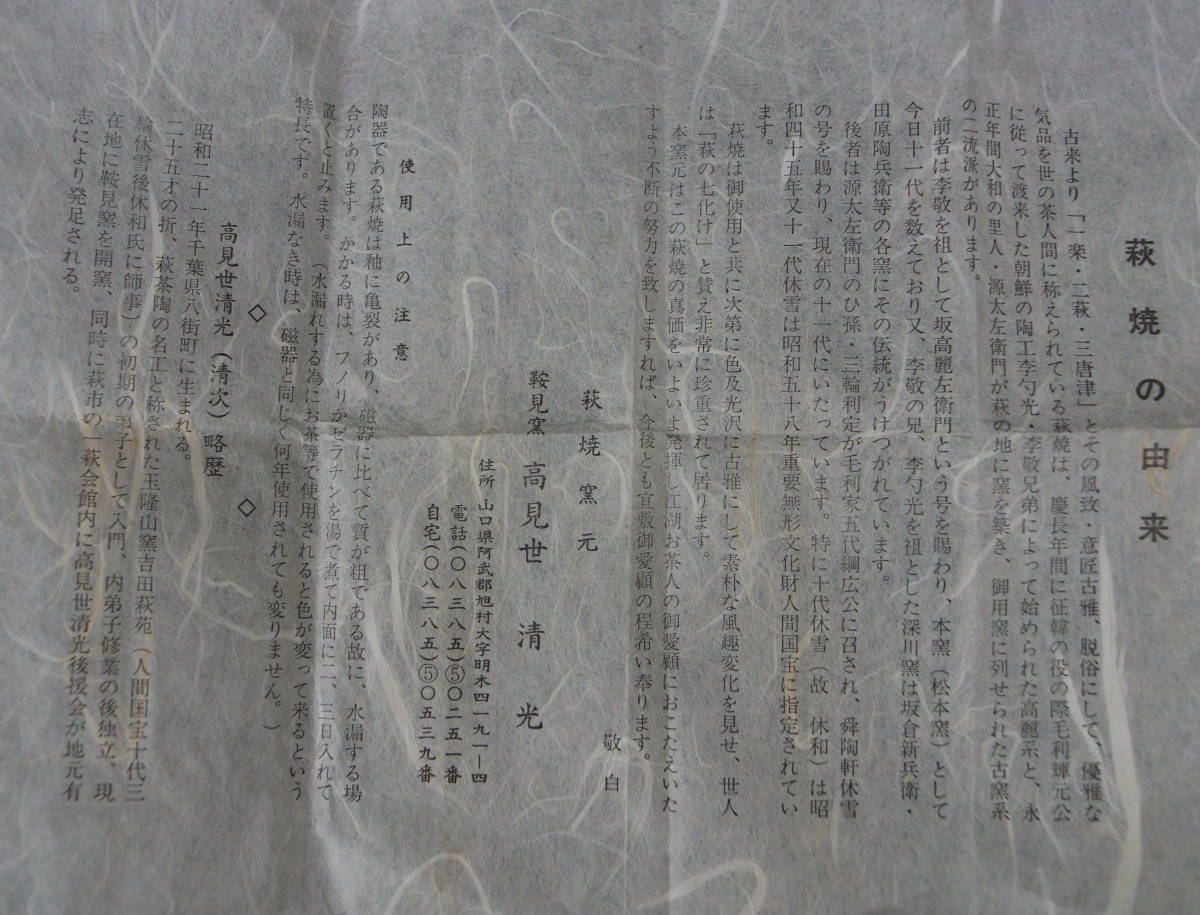 萩焼の由来
古来より「一楽・二萩・三唐津」とその風致・意匠古雅、脱俗にして、優雅な
気品を世の茶人間に称えられている萩焼は、慶長年間に征韓の役の際毛利輝元公
に従って渡来した朝鮮の陶工李勺光・李敬兄弟によって始められた高麗系と、永
正年間大和の里人・源太左衛門が萩の地に窯を築き、御用窯に列せられた古窯系
の二流派があります。
前者は李敬を祖として坂高麗左衛門という号を賜わり、本窯（松本窯）として
今日十一代を数えており又、李敬の兄、李勺光を祖とした深川窯は坂倉新兵衛・
田原陶兵衛等の各窯にその伝統がうけつがれています。
後者は源太左衛門のひ孫・三輪利定が毛利家五代綱広公に召され、舜陶軒休雪
の号を賜わり、現在の十一代にいたっています。特に十代休雪（故　休和）は昭
和四十五年又十一代休雪は昭和五十八年重要無形文化財人間国宝に指定されてい
ます。
萩焼は御使用と共に次第に色及光沢に古雅にして素朴な風趣変化を見せ、世人
は「萩の七化け」と賛え非常に珍重されて居ります。
本窯元はこの萩焼の真価をいよいよ発揮し江湖お茶人の御愛顧におこたえいた
すよう不断の努力を致しますれば、今後とも宜敷御愛顧の程希い奉ります。
敬白
萩焼窯元
鞍見窯　高見世　清光
住所　山口県阿武郡旭村大字明木四一九一―四
電話（〇八三八五）⑤〇二五一番
自宅（〇八三八五）⑤〇五三九番
使用上の注意
陶器である萩焼は釉に亀裂があり、磁器に比べて質が粗である故に、水漏する場
合があります。かかる時は、フノリかゼラチンを湯で煮て内面に二、三日入れて
置くと止みます。（水漏れする為にお茶等で使用されると色が変って来るという
特長です。水漏なき時は、磁器と同じく何年使用されても変りません。）
◇　◇
高見世清光（清次）略歴
昭和二十一年千葉県八街町に生まれる。
二十五才の折、萩茶陶の名工と称された玉隆山窯吉田萩苑（人間国宝十代三
輪休雪後休和氏に師事）の初期の弟子として入門、内弟子修業の後独立、現
在地に鞍見窯を開窯、同時に萩市の一萩会館内に高見世清光後援会が地元有
志により発足される。